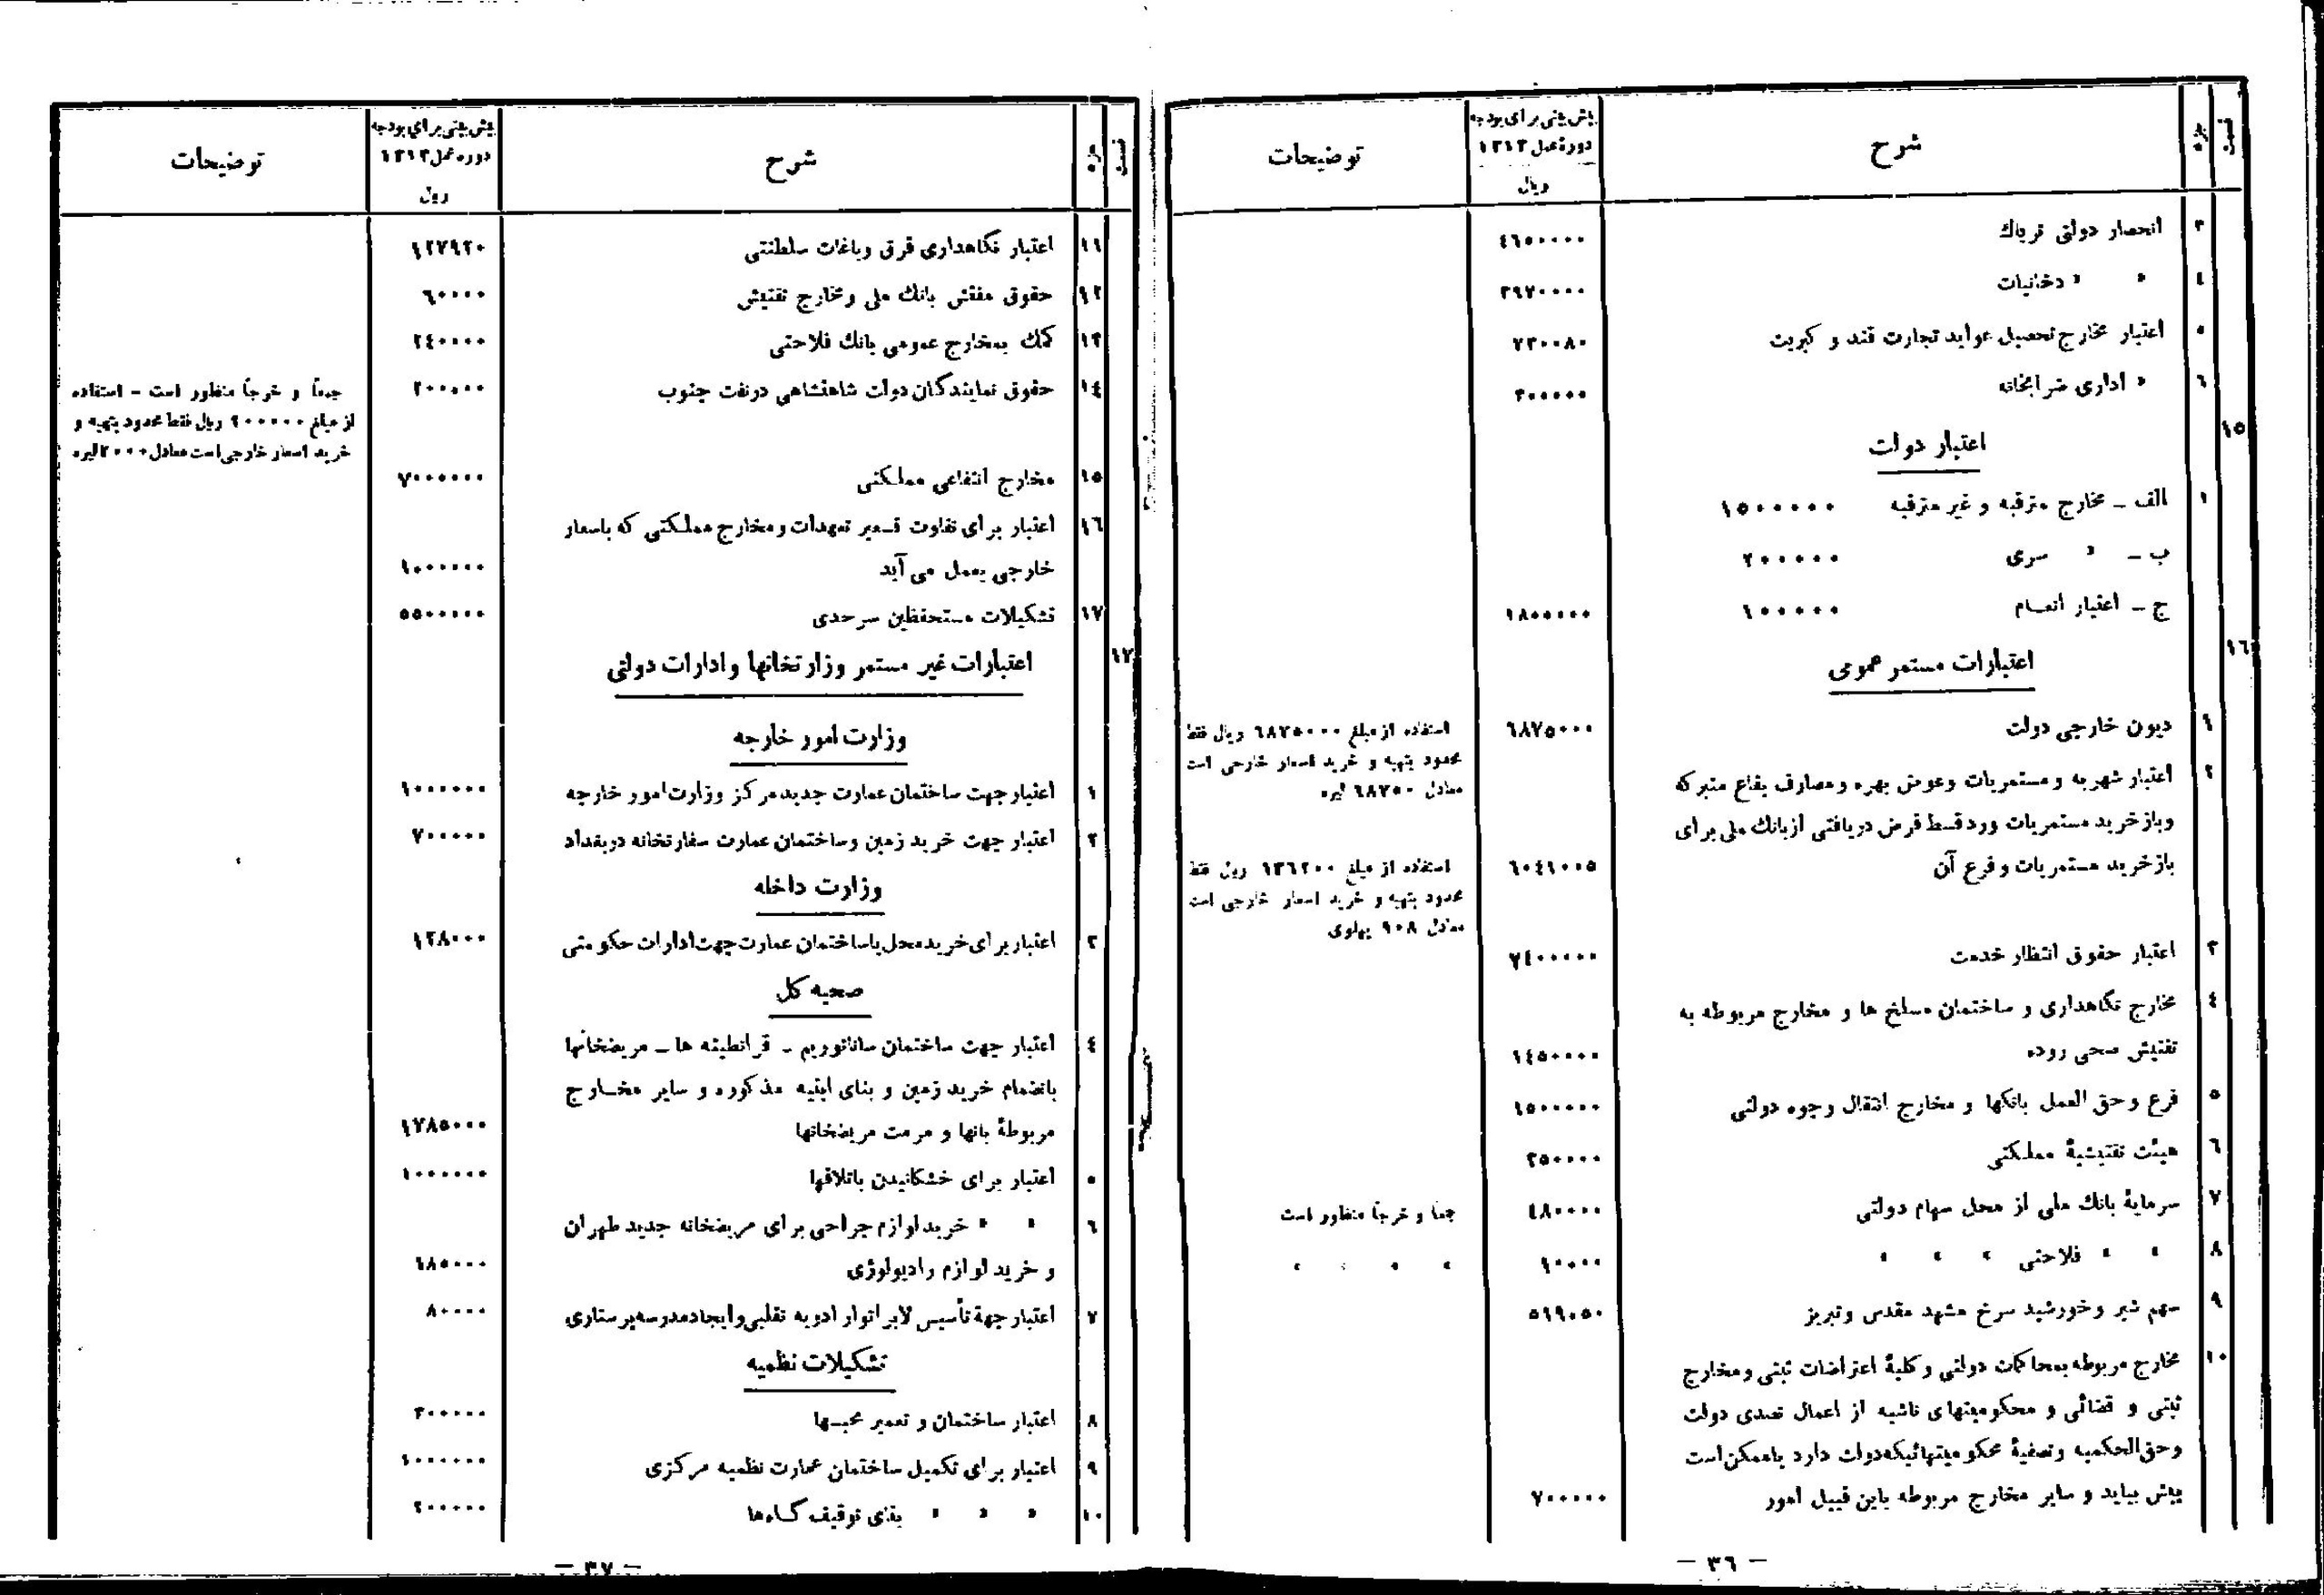 قسمت جزء شرح پیش بینی برای بودجه دورهٔ عمل ۱۳۱۳ ریال توضیحات
۳ انحصار دولتی تریاك ٤٦٥٠٠٠٠
٤ » » دخانیات ۳۹۷۰۰۰۰
٥ اعتبار مخارج تحصیل عواید تجارت قند و کبریت ۷۳۰۰۸۰
٦ » اداری ضرابخانه ۳۰۰۰۰۰
۱٥ اعتبار دولت
۱ الف ـ مخارج مترقبه و غیر مترقبه ۱٥۰۰۰۰۰
ب ـ » سری ۲۰۰۰۰۰
ج ـ اعتبار انعام ۱۰۰۰۰۰ ۱۸۰۰۰۰۰
۱٦ اعتبارات مستمر عمومی
۱ دیون خارجی دولت ٦۸۷٥۰۰۰ استفاده از مبلغ ٦۸۷٥۰۰۰ ریال فقط
محدود بتهیه و خرید اسعار خارجی است
معادل ٦۸۷٥۰ لیره
۲ اعتبار شهریه و مستمریات وعوض بهره ومصارف بقاع متبرکه
وبازخرید مستمریات ورد قسط قرض دریافتی ازبانك ملی برای
بازخرید مستمریات و فرع آن ٦۰٤۱۰۰٥ استفاده از مبلغ ۱۳٦۲۰۰ ریال فقط
محدود بتهیه و خرید اسعار خارجی است
معادل ۹۰۸ پهلوی
۳ اعتبار حقوق انتظار خدمت ۷٤۰۰۰۰۰
٤ مخارج نگاهداری و ساختمان مسلخ ها و مخارج مربوطه به
تفتیش صحی روده ۱٤٥۰۰۰۰
٥ فرع وحق العمل بانکها و مخارج انتقال وجوه دولتی ۱٥۰۰۰۰۰
٦ هیئت تفتیشیهٔ مملکتی ۲٥۰۰۰۰
۷ سرمایهٔ بانك ملی از محل سهام دولتی ٤۸۰۰۰۰ جمعاً و خرجاً منظور است
۸ » » فلاحتی » » » ۱۰۰۰۰ » » » »
۹ سهم شیر وخورشید سرخ مشهد مقدس وتبریز ٥۱۹۰٥۰
۱۰ مخارج مربوطه بمحاکمات دولتی وکلیهٔ اعتراضات ثبتی ومخارج
ثبتی و قضائی و محکومیتهای ناشیه از اعمال تصدی دولت
وحق الحکمیه وتصفیهٔ محکومیتهائیکه دولت دارد یاممکن است
پیش بیاید و سایر مخارج مربوطه باین قبیل امور ۷۰۰۰۰۰
ـ ۳٦ ـ
قسمت جزء شرح پیش بینی برای بودجه دوره عمل ۱۳۱۳ ریال توضیحات
۱۱ اعتبار نگاهداری قرق وباغات سلطنتی ۱۲۷۹۲۰
۱۲ حقوق مفتش بانك ملی ومخارج تفتیش ٦۰۰۰۰
۱۳ کمك بمخارج عمومی بانك فلاحتی ۲٤۰۰۰۰
۱٤ حقوق نمایندگان دولت شاهنشاهی درنفت جنوب ۲۰۰۰۰۰ جمعاً و خرجاً منظور است ـ استفاده
از مبلغ ۲۰۰۰۰۰ ریال فقط محدود بتهیه و
خرید اسعار خارجی است معادل ۲۰۰۰ لیره
۱٥ مخارج انتفاعی مملکتی ۷۰۰۰۰۰۰
۱٦ اعتبار برای تفاوت تسعیر تعهدات ومخارج مملکتی که باسعار
خارجی بعمل می آید ۱۰۰۰۰۰۰
۱۷ تشکیلات مستحفظین سرحدی ٥٥۰۰۰۰۰
۱۷ اعتبارات غیر مستمر وزارتخانها وادارات دولتی
وزارت امور خارجه
۱ اعتبار جهت ساختمان عمارت جدید مرکز وزارت امور خارجه ۱۰۰۰۰۰۰
۲ اعتبار جهت خرید زمین وساختمان عمارت سفارتخانه در بغداد ۷۰۰۰۰۰
وزارت داخله
۳ اعتبار برای خرید محل یا ساختمان عمارت جهت ادارات حکومتی ۱۲۸۰۰۰
صحیه کل
٤ اعتبار جهت ساختمان ساناتوریم ـ قرانطینه ها ـ مریضخانها
بانضمام خرید زمین و بنای ابنیه مذکوره و سایر مخارج
مربوطهٔ بانها و مرمت مریضخانها ۱۷۸٥۰۰۰
٥ اعتبار برای خشکانیدن باتلاقها ۱۰۰۰۰۰۰
٦ » » خرید لوازم جراحی برای مریضخانه جدید طهران
و خرید لوازم رادیولوژی ٦۸٥۰۰۰
۷ اعتبار جهة تأسیس لابراتوار ادویه تقلبی وایجاد مدرسه پرستاری ۸۰۰۰۰
تشکیلات نظمیه
۸ اعتبار ساختمان و تعمیر محبسها ۳۰۰۰۰۰
۹ اعتبار برای تکمیل ساختمان عمارت نظمیه مرکزی ۱۰۰۰۰۰۰
۱۰ » » » بنای توقیف گاهها ۲۰۰۰۰۰
ـ ۳۷ ـ